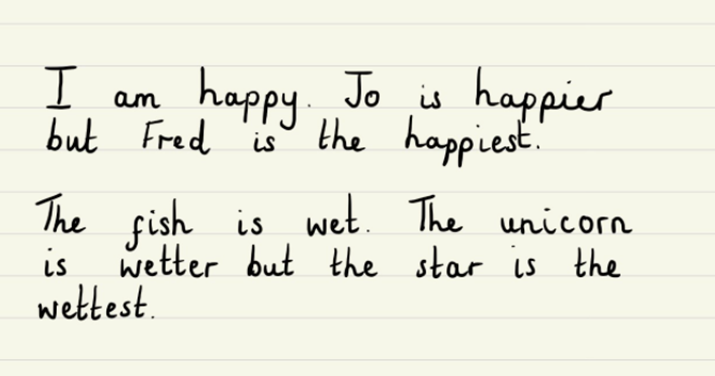 I am happy. Jo is happier
but Fred is the happiest.
The fish is wet. The unicorn
is wetter but the star is the
wettest.